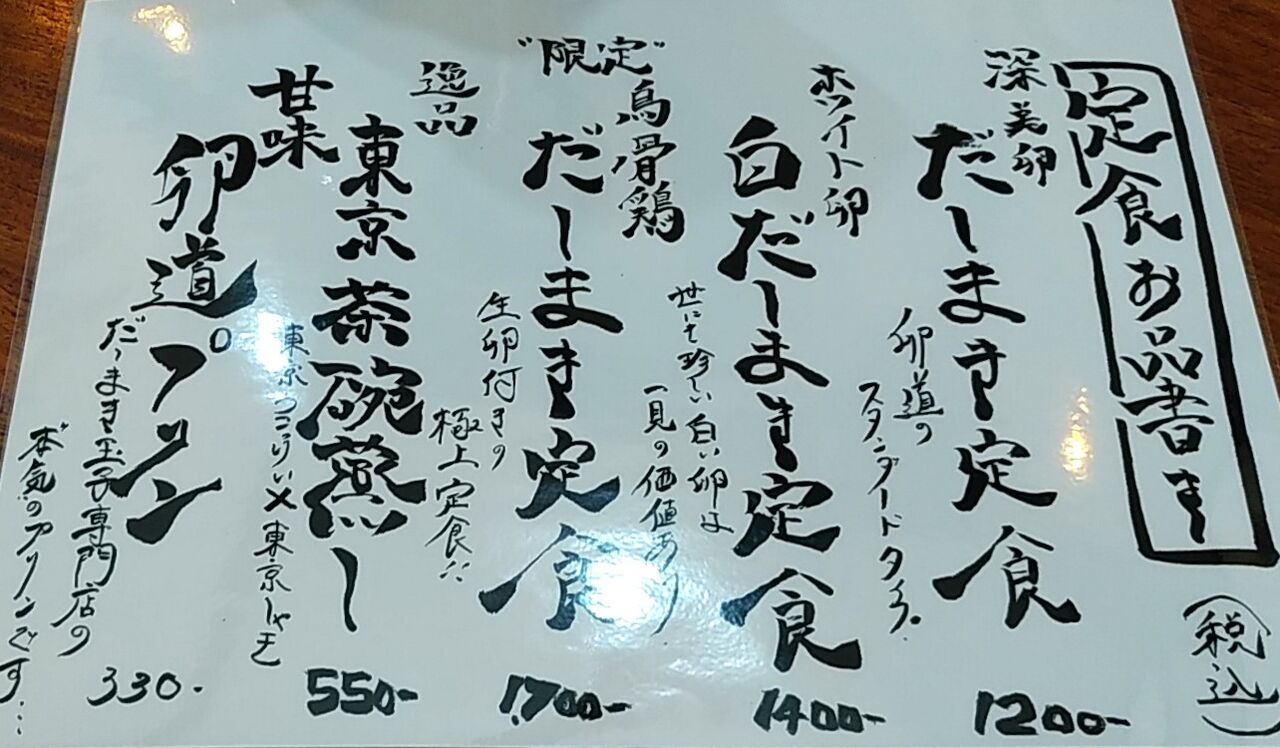 定食お品書き
(税込)
深美卵
だしまき定食
卵道の
スタンダードタイプ。
1200-
ホワイト卵
白だしまき定食
世にも珍しい白い卵は
一見の価値あり
1400-
"限定"
烏骨鶏
だしまき定食
生卵付きの
極上定食!!
1,700-
逸品
東京茶碗蒸し
東京うこっけい×東京しゃも
550-
甘味
卵道プリン
だしまき玉子専門店の
本気のプリンです…
330-